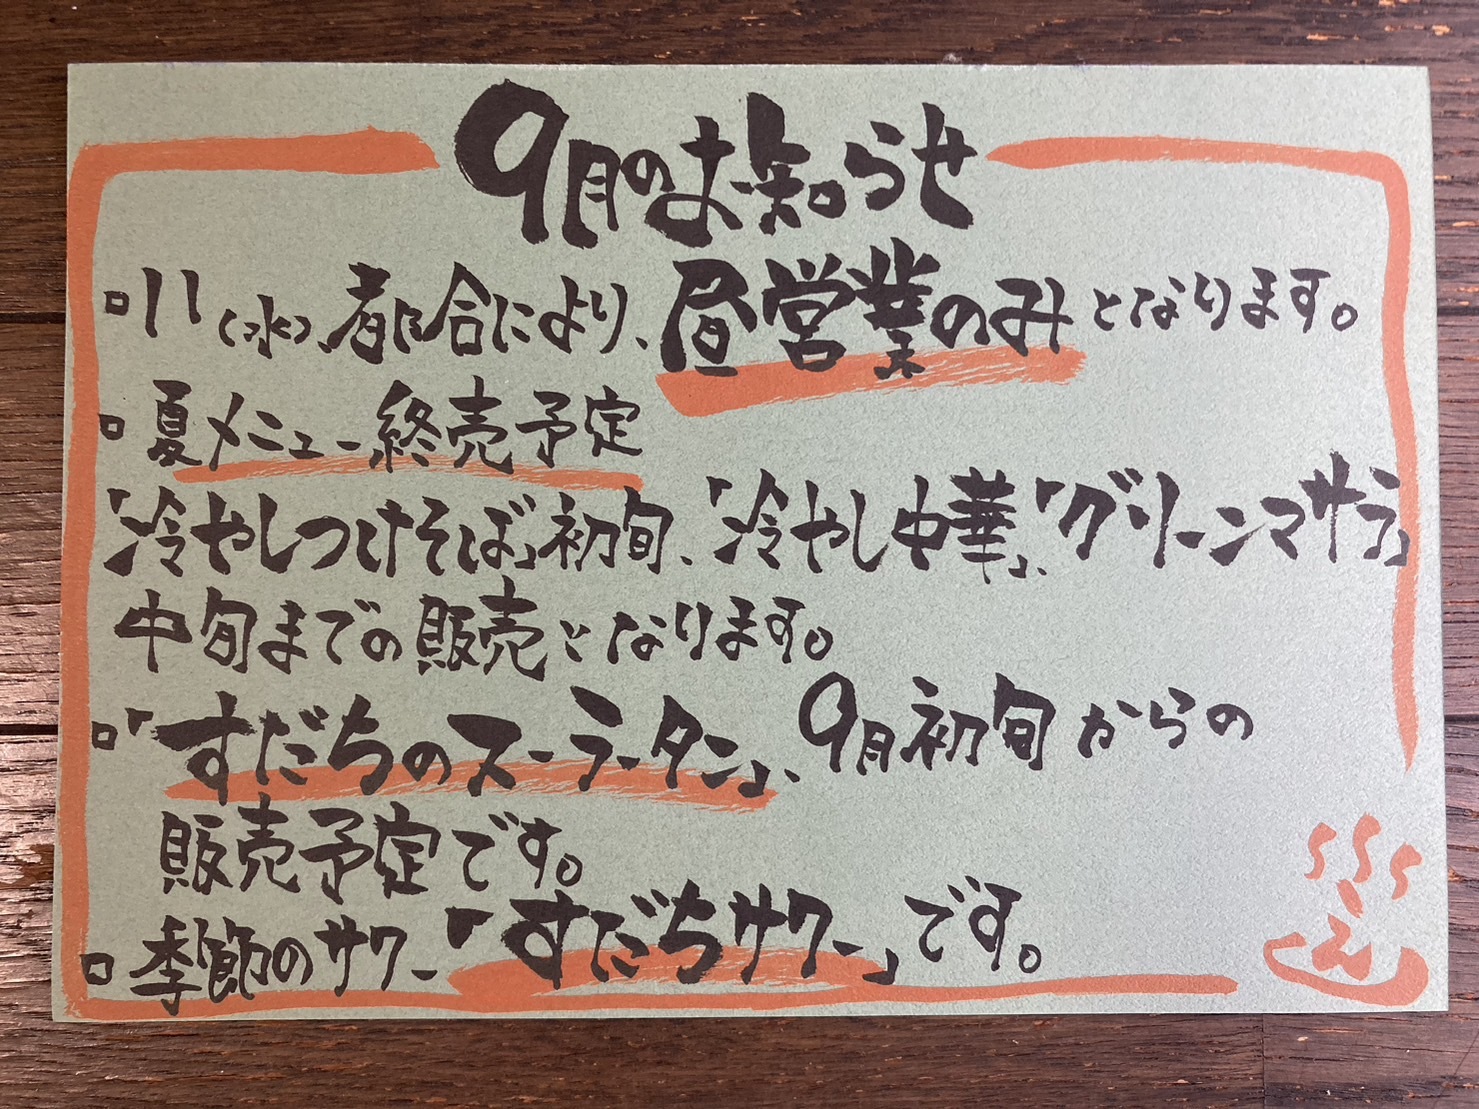 9月のお知らせ
□11(水)、都合により、昼営業のみとなります。
□夏メニュー終売予定
「冷やしつけそば」初旬、「冷やし中華」、「グリーンマサラ」
中旬までの販売となります。
□「すだちのスーラータン」、9月初旬からの
販売予定です。
□季節のサワー「すだちサワー」です。